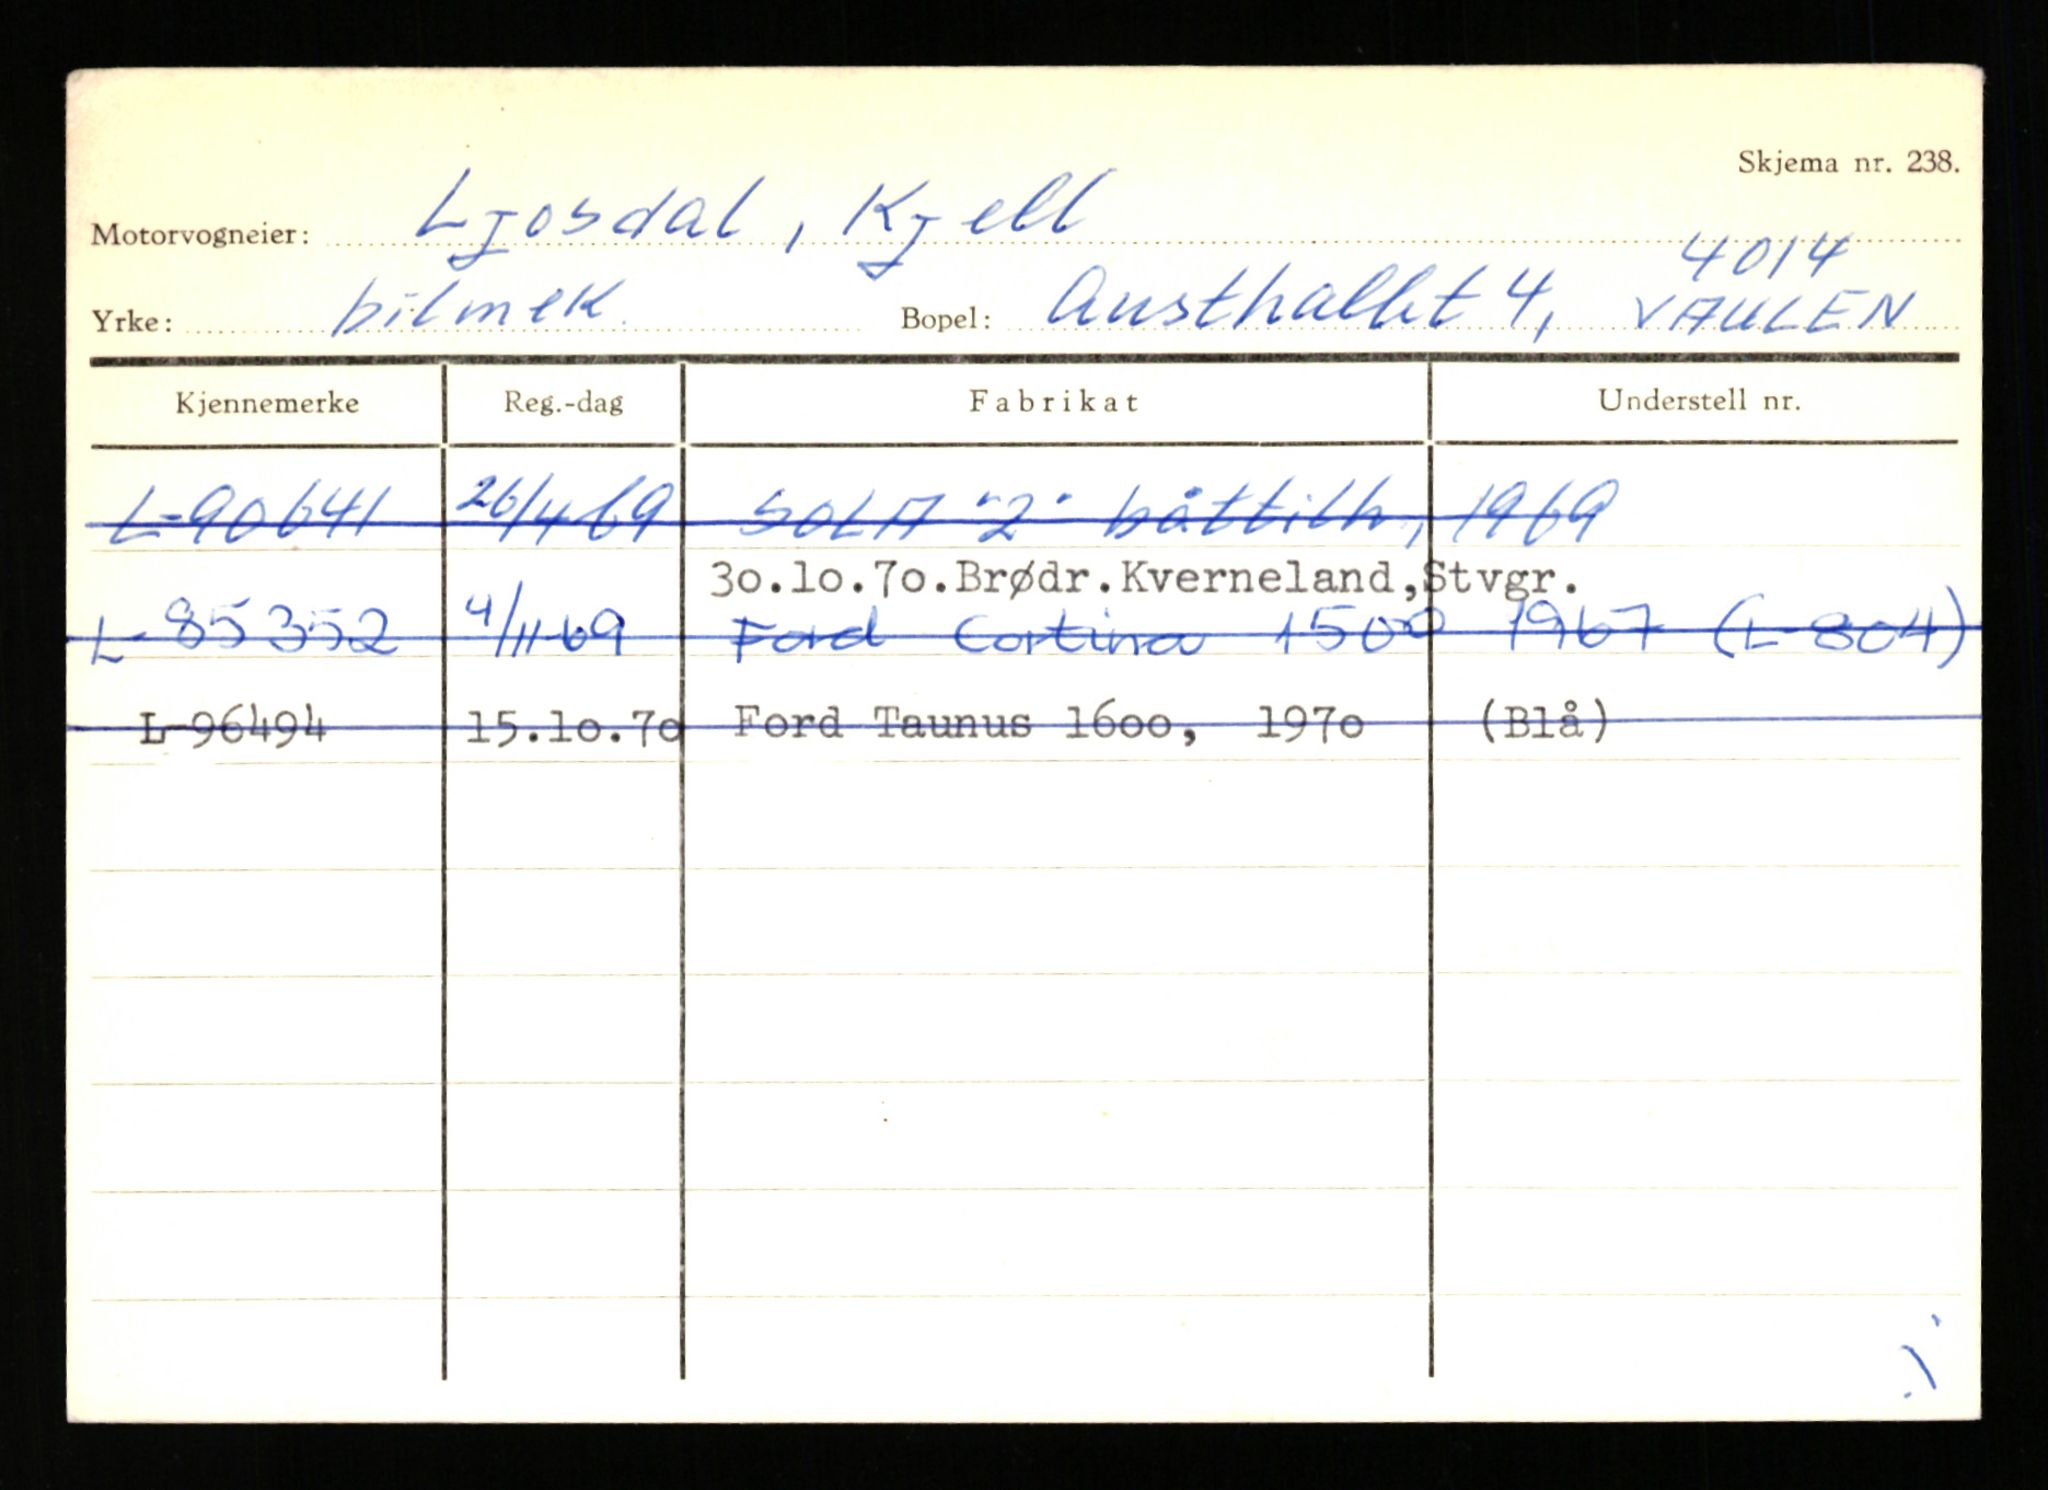 Skjema nr. 238.
Motorvogneier: Ljosdal, Kjell
Yrke: bilmek. Bopel: Austhallet 4, 4014 VAULEN
Kjennemerke Reg.-dag Fabrikat Understell nr.
L-90641 26/4 69 SOLA "2" båttilh, 1969
30.10.70.Brødr.Kverneland,Stvgr.
L-85352 4/11-69 Ford Cortina 1500 1967 (L-804)
L-96494 15.10.70 Ford Taunus 1600, 1970 (Blå)